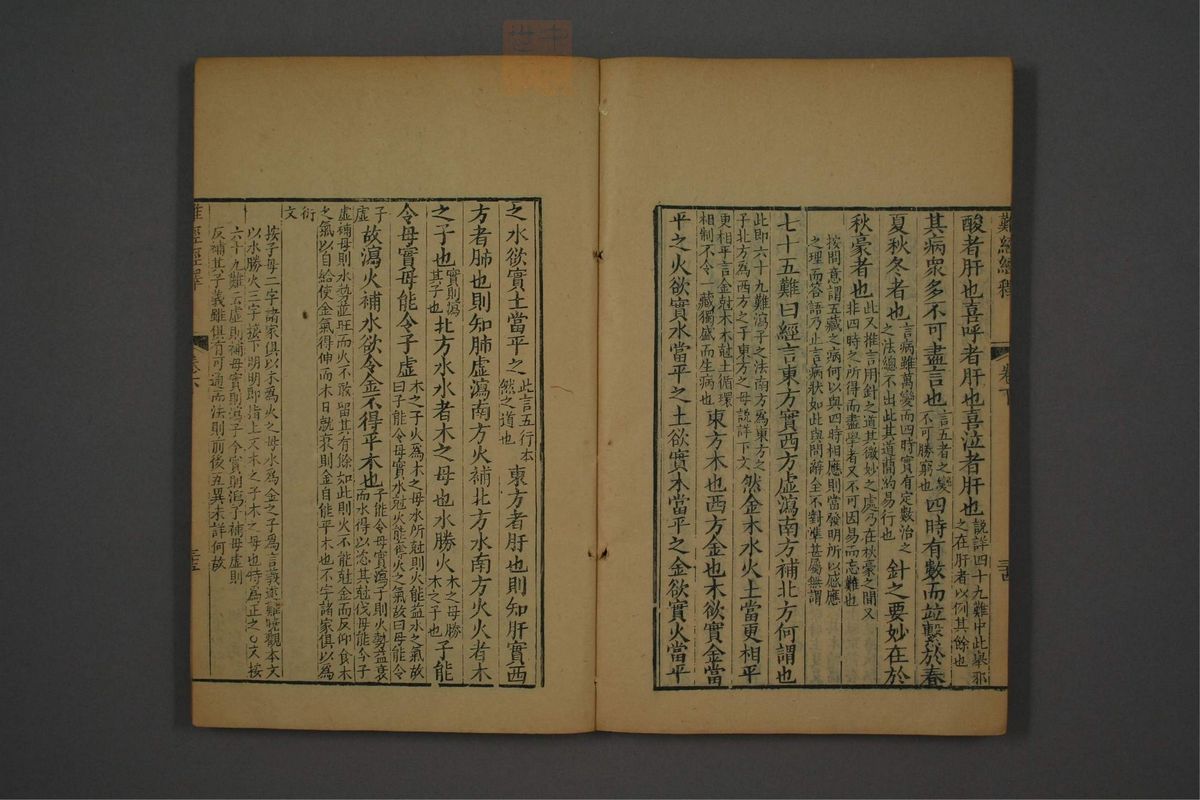 難經經釋
卷下
酸者肝也喜呼者肝也喜泣者肝也說詳四十九難中此舉邪之在肝者以例其餘也
其病衆多不可盡言也言五者之變不可勝窮也四時有數而並繫於春
夏秋冬者也言病雖萬變而四時實有定數治之之法總不出此其道簡約易行也針之要妙在於
秋豪者也此又推言用針之道其微妙之處乃在秋豪之間又非四時之所得而盡學者又不可因易而忘難也
按問意謂五藏之病何以與四時相應則當發明所以感應之理而答語乃止言病狀如此與問辭全不對準甚屬無謂
七十五難曰經言東方實西方虛瀉南方補北方何謂也
此即六十九難瀉子之法南方爲東方之子北方爲西方之子東方之母說詳下文然金木水火土當更相平
更相平言金尅木木尅土循環相制不令一藏獨盛而生病也東方木也西方金也木欲實金當
平之火欲實水當平之土欲實木當平之金欲實火當平
之水欲實土當平之此言五行本然之道也東方者肝也則知肝實西
方者肺也則知肺虛瀉南方火補北方水南方火火者木
之子也實則瀉其子也北方水水者木之母也水勝火木之母勝木之子也子能
令母實母能令子虛木之子火爲木之母水所尅則火能益水之氣故曰子能令母實水尅火能奪火之氣故曰母能令
子虛故瀉火補水欲令金不得平木也子能令母實瀉子則火勢益衰而水得以恣其尅伐母能令子
虛補母則水勢益旺而火不敢留其有餘如此則火不能尅金而反仰食木
之氣以自給使金氣得伸而木日就衰則金自能平木也不字諸家俱以爲
衍文
按子母二字諸家俱以木爲火之母水爲金之子爲言義遂難曉觀本文
以水勝火三字接下明明即指上文木之子木之母也時爲正之〇又按
六十九難云虛則補母實則瀉子今實則瀉子補母虛則
反補其子義雖俱有可通而法則前後互異未詳何故
難經經釋